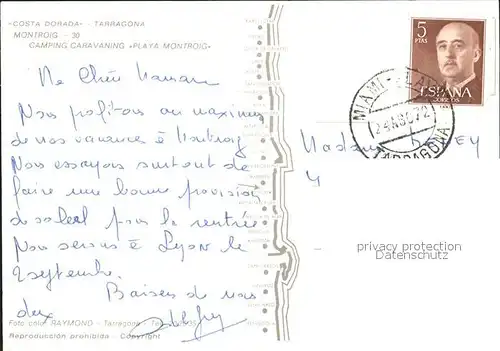 "COSTA DORADA" - TARRAGONA
MONTROIG - 30
CAMPING CARAVANING «PLAYA MONTROIG»
Ma Chère Maman
Nous profitons au maximum
de nos vacances à Montroig
Nous essayons surtout de
faire une bonne provision
de soleil pour la rentrée
Nous serons à Lyon le
2 septembre.
Baisers de nous
deux
Foto color RAYMOND - Tarragona
Reproducción prohibida - Copyright
5
PTAS
ESPAÑA
CORREOS
MIAMI-PLAYA
TARRAGONA
Madame
privacy protection
Datenschutz